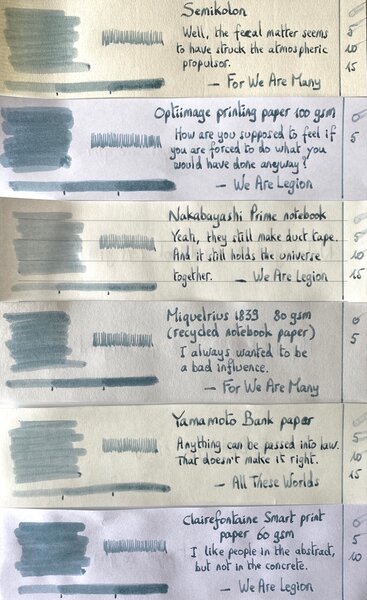 Semikolon
Well, the fecal matter seems
to have struck the atmospheric
propulsor.
— For We Are Many
0
5
10
15
Optiimage printing paper 100 gsm
How are you supposed to feel if
you are forced to do what you
would have done anyway?
— We Are Legion
0
5
Nakabayashi Prime notebook
Yeah, they still make duct tape.
And it still holds the universe
together. — We Are Legion
0
5
10
15
Miquelrius 1839 80 gsm
(recycled notebook paper)
I always wanted to be
a bad influence.
— For We Are Many
0
5
Yamamoto Bank paper
Anything can be passed into law.
That doesn't make it right.
— All These Worlds
0
5
10
15
Clairefontaine Smart print
paper 60 gsm
I like people in the abstract,
but not in the concrete.
— We Are Legion
0
5
10